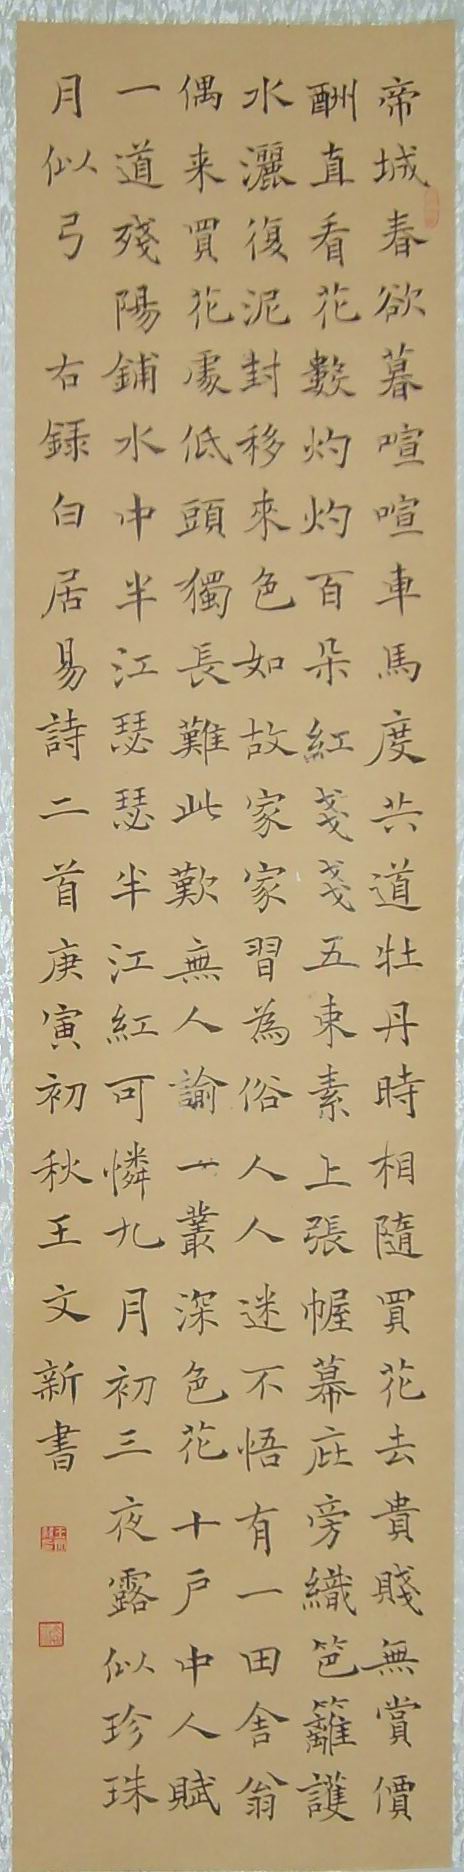 帝城春欲暮喧喧車馬度共道牡丹時相隨買花去貴賤無賞價
酬直看花數灼灼百朵紅戔戔五束素上張幄幕庇旁織笆籬護
水灑復泥封移來色如故家家習為俗人人迷不悟有一田舍翁
偶来買花處低頭獨長難此歎無人諭一叢深色花十戶中人賦
一道殘陽鋪水中半江瑟瑟半江紅可憐九月初三夜露似珍珠
月似弓 右録白居易詩二首庚寅初秋王文新書